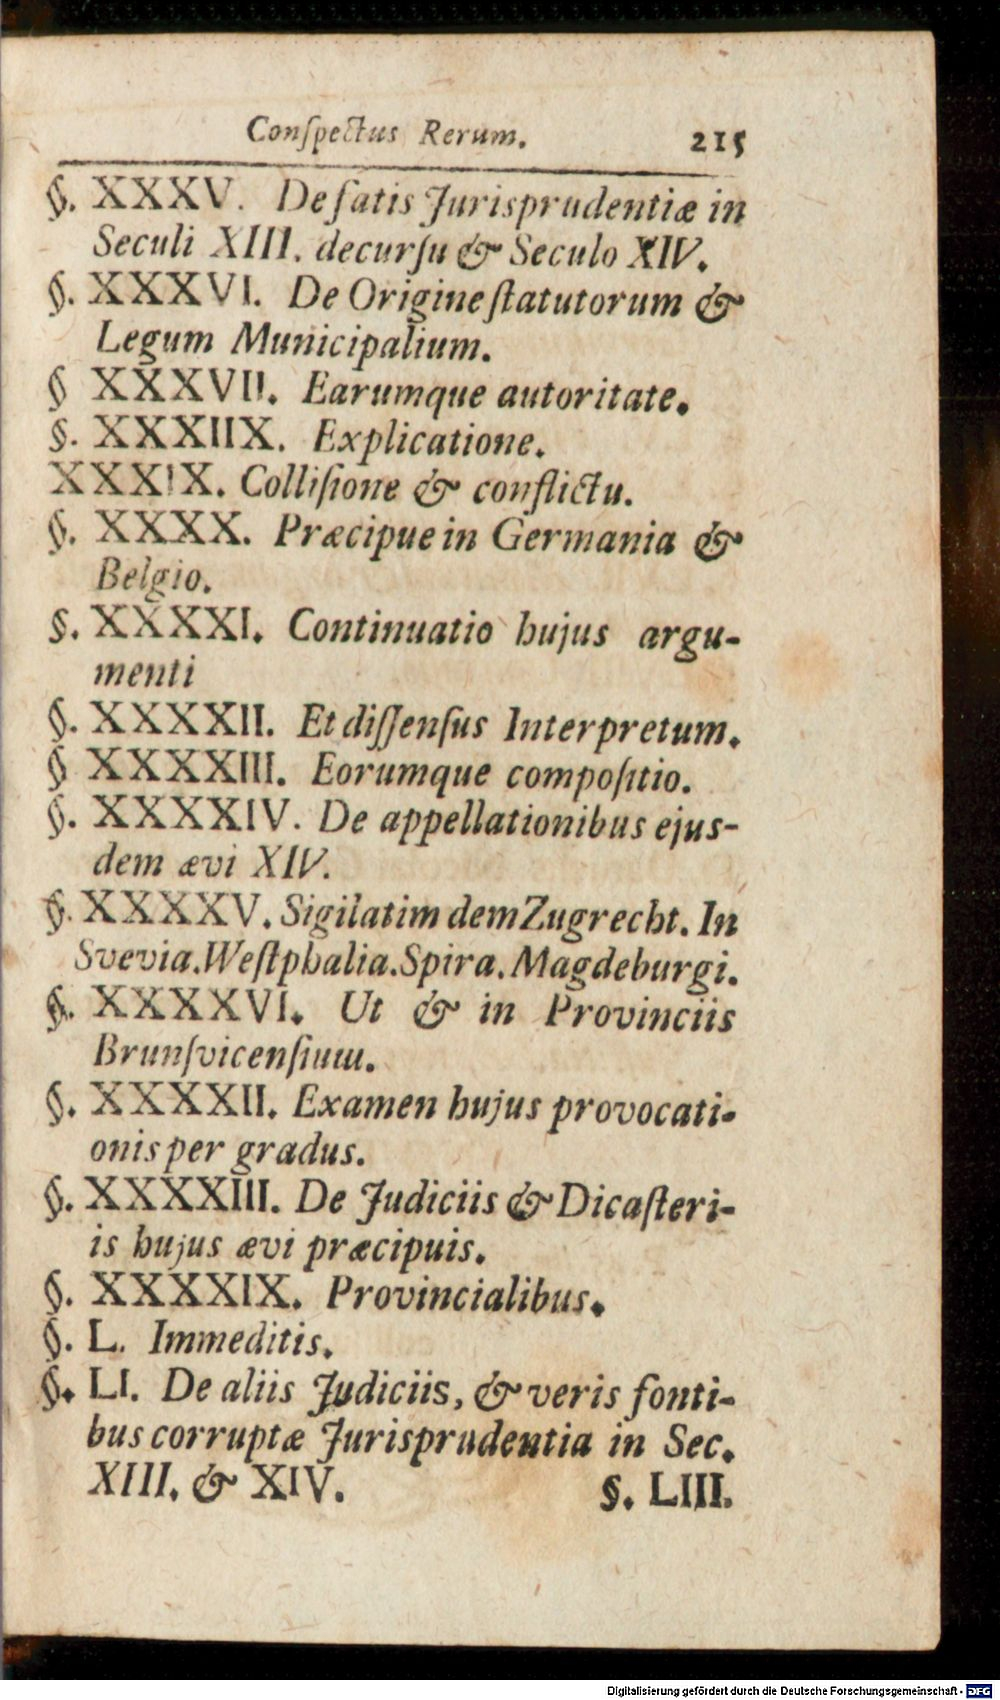 Conſpectus Rerum. 215
§. XXXV. De fatis Jurisprudentiæ in
Seculi XIII. decurſu & Seculo XIV.
§. XXXVI. De Origine ſtatutorum &
Legum Municipalium.
§ XXXVII. Earumque autoritate.
§. XXXIIX. Explicatione.
XXXIX. Colliſione & conflictu.
§. XXXX. Præcipue in Germania &
Belgio.
§. XXXXI. Continuatio hujus argu-
menti
§. XXXXII. Et diſſenſus Interpretum.
§ XXXXIII. Eorumque compoſitio.
§. XXXXIV. De appellationibus ejus-
dem ævi XIV.
§. XXXXV. Sigilatim dem Zugrecht. In
Svevia. Weſtphalia. Spira. Magdeburgi.
§. XXXXVI. Ut & in Provinciis
Brunſvicenſium.
§. XXXXII. Examen hujus provocati-
onis per gradus.
§. XXXXIII. De Judiciis & Dicaſteri-
is hujus ævi præcipuis.
§. XXXXIX. Provincialibus.
§. L. Immeditis.
§. LI. De aliis Judiciis, & veris fonti-
bus corruptæ Jurisprudentia in Sec.
XIII. & XIV. §. LIII.
Digitalisierung gefördert durch die Deutsche Forschungsgemeinschaft - DFG